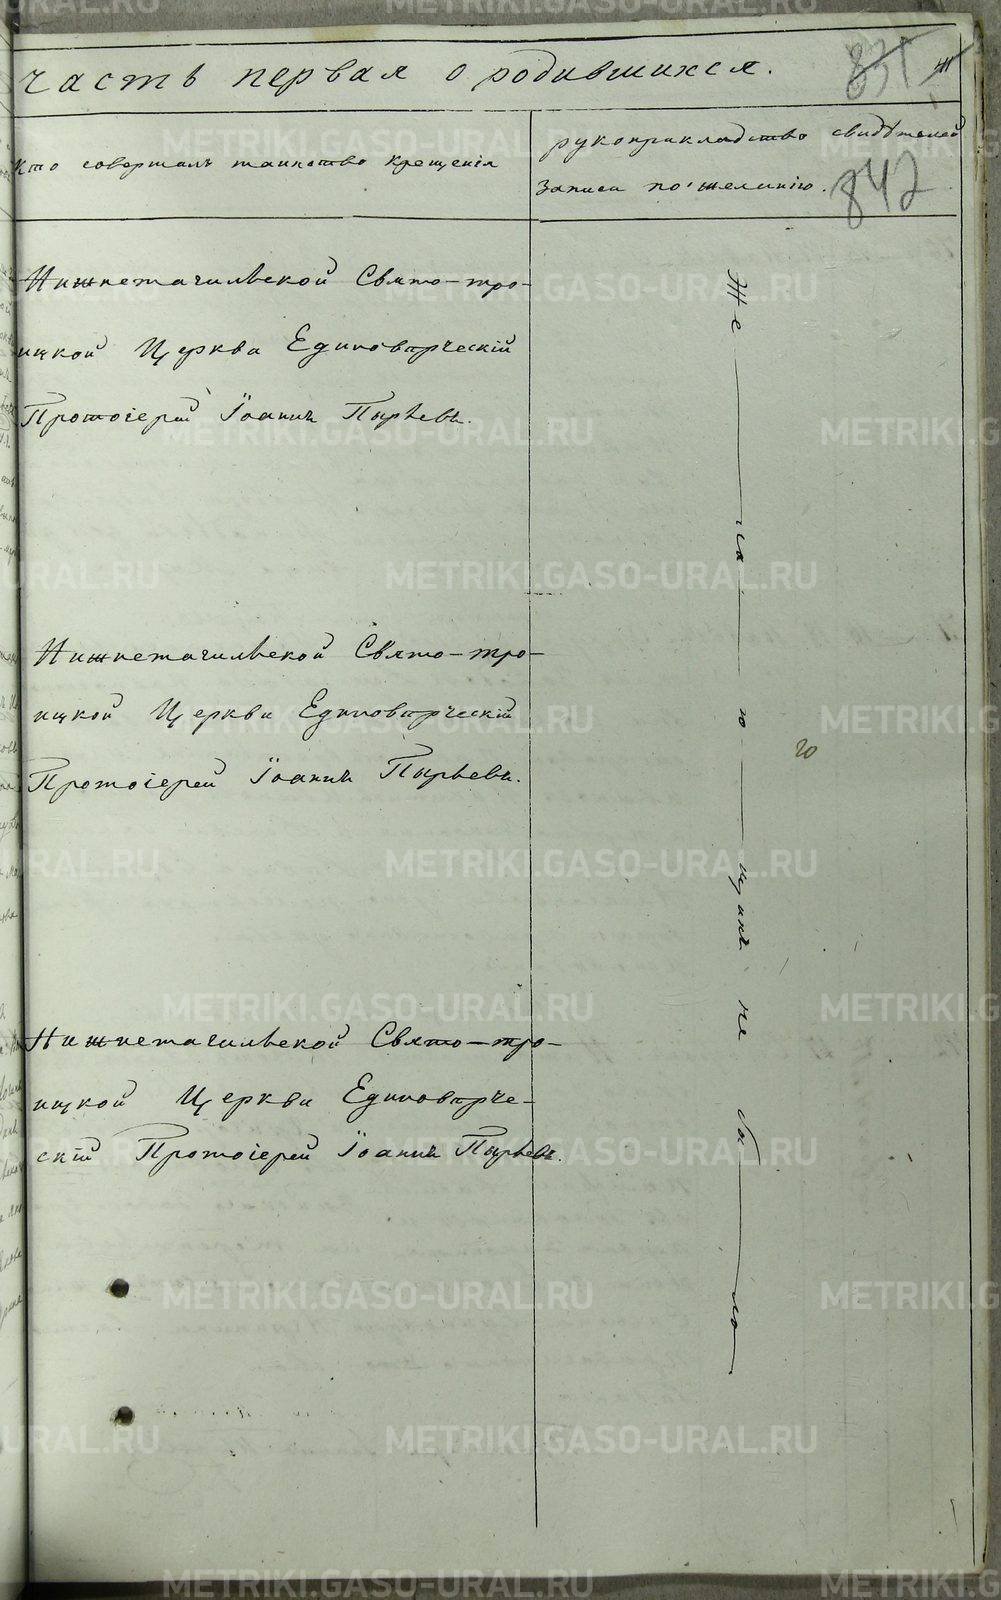 часть первая о родившихся.
831
842
Кто совершалъ таинство крещенія
рукоприкладство свидѣтелей
записи по желанію.
Нижнетагильской Свято-тро-
ицкой Церкви Единовѣрческій
Протоіерей Іоаннъ Пырьевъ.
Нижнетагильской Свято-тро-
ицкой Церкви Единовѣрческій
Протоіерей Іоаннъ Пырьевъ.
Нижнетагильской Свято-тро-
ицкой Церкви Единовѣрче-
скій Протоіерей Іоаннъ Пырьевъ.
Же — ла — ю — щихъ не бы — ло
METRIKI.GASO-URAL.RU